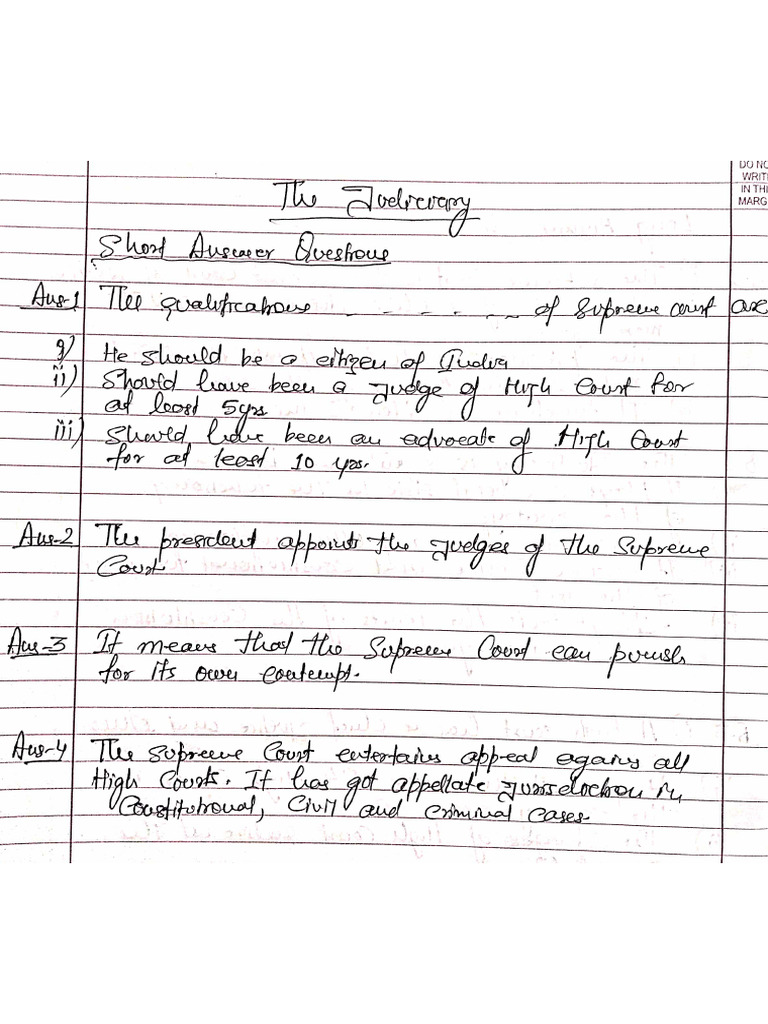 DO NO
WRIT
IN THI
MARG
The Judiciary
Short Answer Questions
Ans-1 The qualifications - - - - - - - of Supreme court are
i) He should be a citizen of India
ii) Should have been a Judge of High Court for
at least 5yrs
iii) Should have been an advocate of High Court
for at least 10 yrs.
Ans-2 The president appoints the Judges of the Supreme
Court
Ans-3 It means that the Supreme Court can punish
for its own contempt.
Ans-4 The Supreme Court entertains appeal agains all
High Courts. It has got appellate Jurisdiction in
Constitutional, Civil and Criminal Cases.